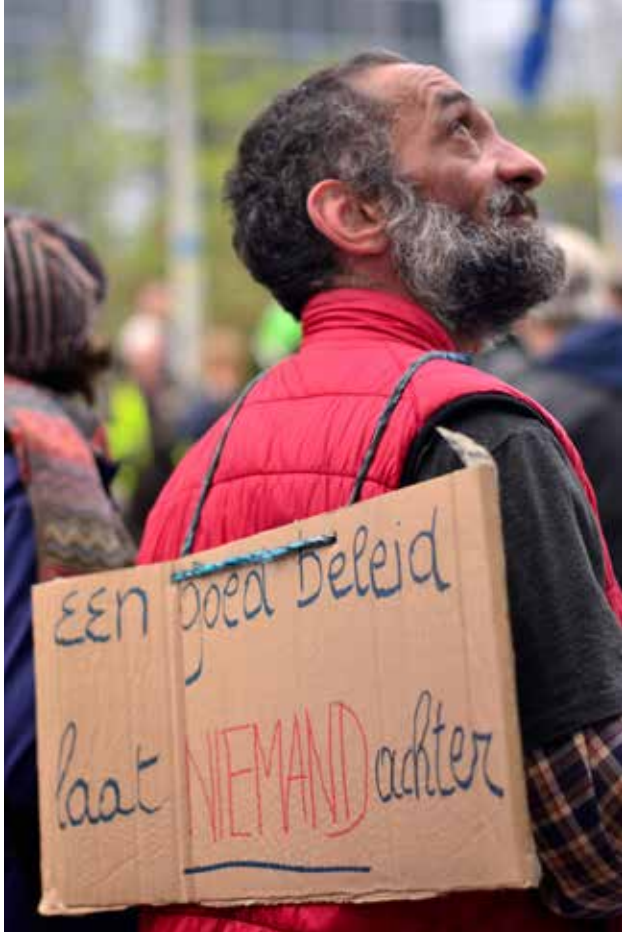 EEN goed beleid
laat NIEMAND achter